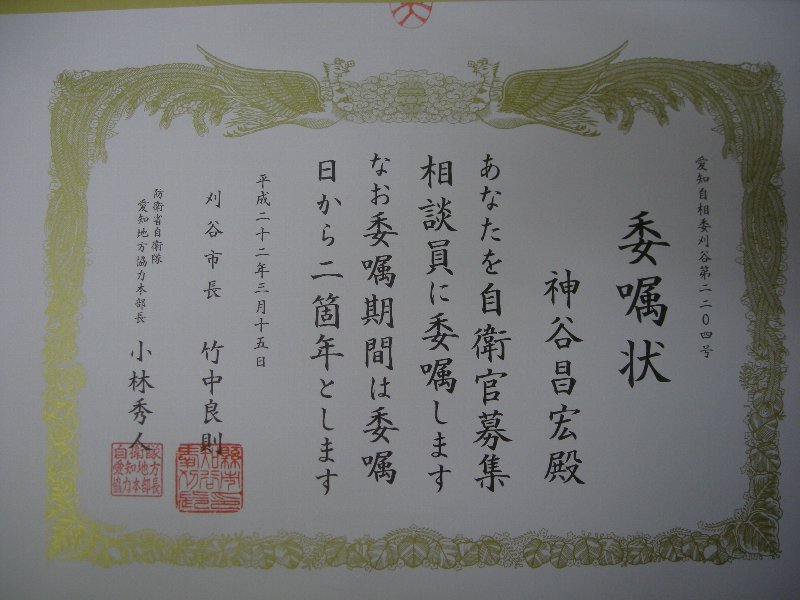 愛知自相委刈谷第二二〇四号
委嘱状
神谷昌宏殿
あなたを自衛官募集
相談員に委嘱します
なお委嘱期間は委嘱
日から二箇年とします
平成二十二年三月十五日
刈谷市長 竹中良則
防衛省自衛隊
愛知地方協力本部長 小林秀人